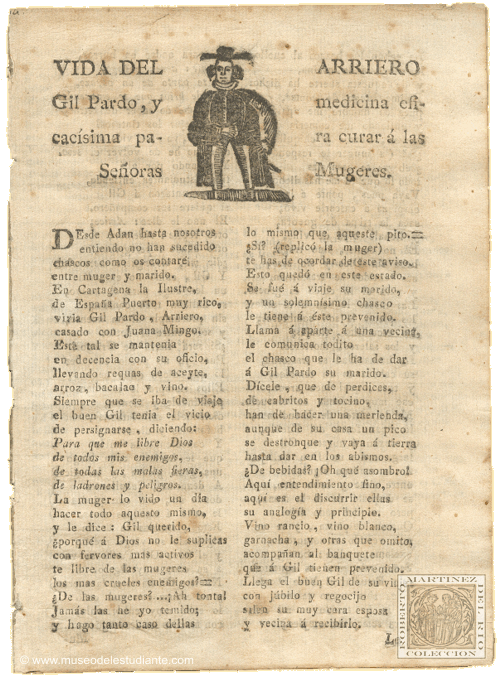 VIDA DEL ARRIERO
Gil Pardo, y medicina efi-
cacísima pa- ra curar á las
Señoras Mugeres.
DEsde Adan hasta nosotros
entiendo no han sucedido
chascos como os contaré,
entre muger y marido.
En Cartagena la Ilustre,
de España Puerto muy rico,
vivia Gil Pardo, Arriero,
casado con Juana Mingo.
Esta tal se mantenia
en decencia con su oficio,
llevando requas de aceyte,
arroz, bacalao y vino.
Siempre que se iba de viaje
el buen Gil tenia el vicio
de persignarse, diciendo:
Para que me libre Dios
de todos mis enemigos,
de todas las malas fieras,
de ladrones y peligros.
La muger lo vido un dia
hacer todo aquesto mismo,
y le dice: Gil querido,
¿porqué á Dios no le suplicas
con fervores mas activos
te libre de las mugeres
los mas crueles enemigos?=
¿De las mugeres?...¡Ah tonta!
Jamás las he yo temido;
y hago tanto caso dellas
lo mismo que aqueste pito.=
¿Sí? (replicó la muger)
te has de acordar de este aviso.
Esto quedó en este estado.
Se fué á viaje su marido,
y un solemnísimo chasco
le tiene á éste prevenido.
Llama á aparte á una vecina,
le comunica todito
el chasco que le ha de dar
á Gil Pardo su marido.
Dícele, que de perdices,
de cabritos y tocino,
han de hacer una merienda,
aunque de su casa un pico
se destronque y vaya á tierra
hasta dar en los abismos.
¿De bebidas? ¡Oh qué asombro!
Aquí entendimiento fino,
aquí es el discurrir ellas
su analogía y principio.
Vino rancio, vino blanco,
garnacha, y otras que omito,
acompañan al banquete
que á Gil tienen prevenido.
Llega el buen Gil de su
con júbilo y regocijo
salen su muy cara esposa
y vecina á recibirlo.
ROBERTO MARTINEZ DEL RIO
COLECCION
© www.museodelestudiante.com